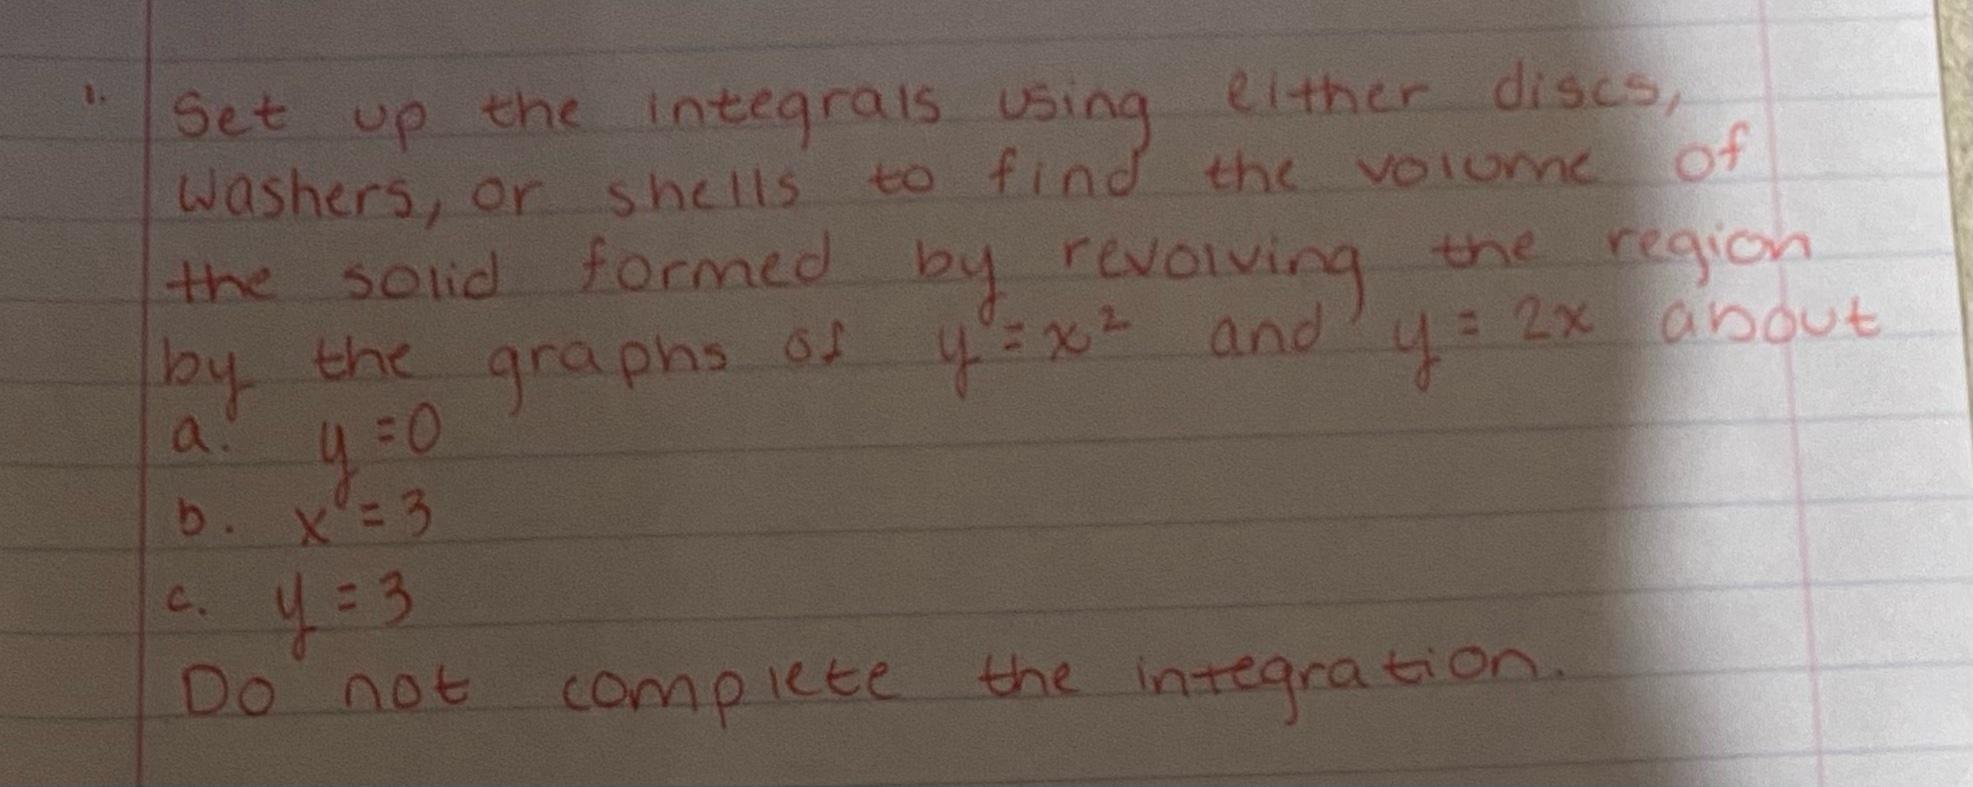 1. Set up the integrals using either discs,
washers, or shells to find the volume of
the solid formed by revolving the region
by the graphs of y = x² and y = 2x about
a. y = 0
b. x = 3
c. y = 3
Do not complete the integration.